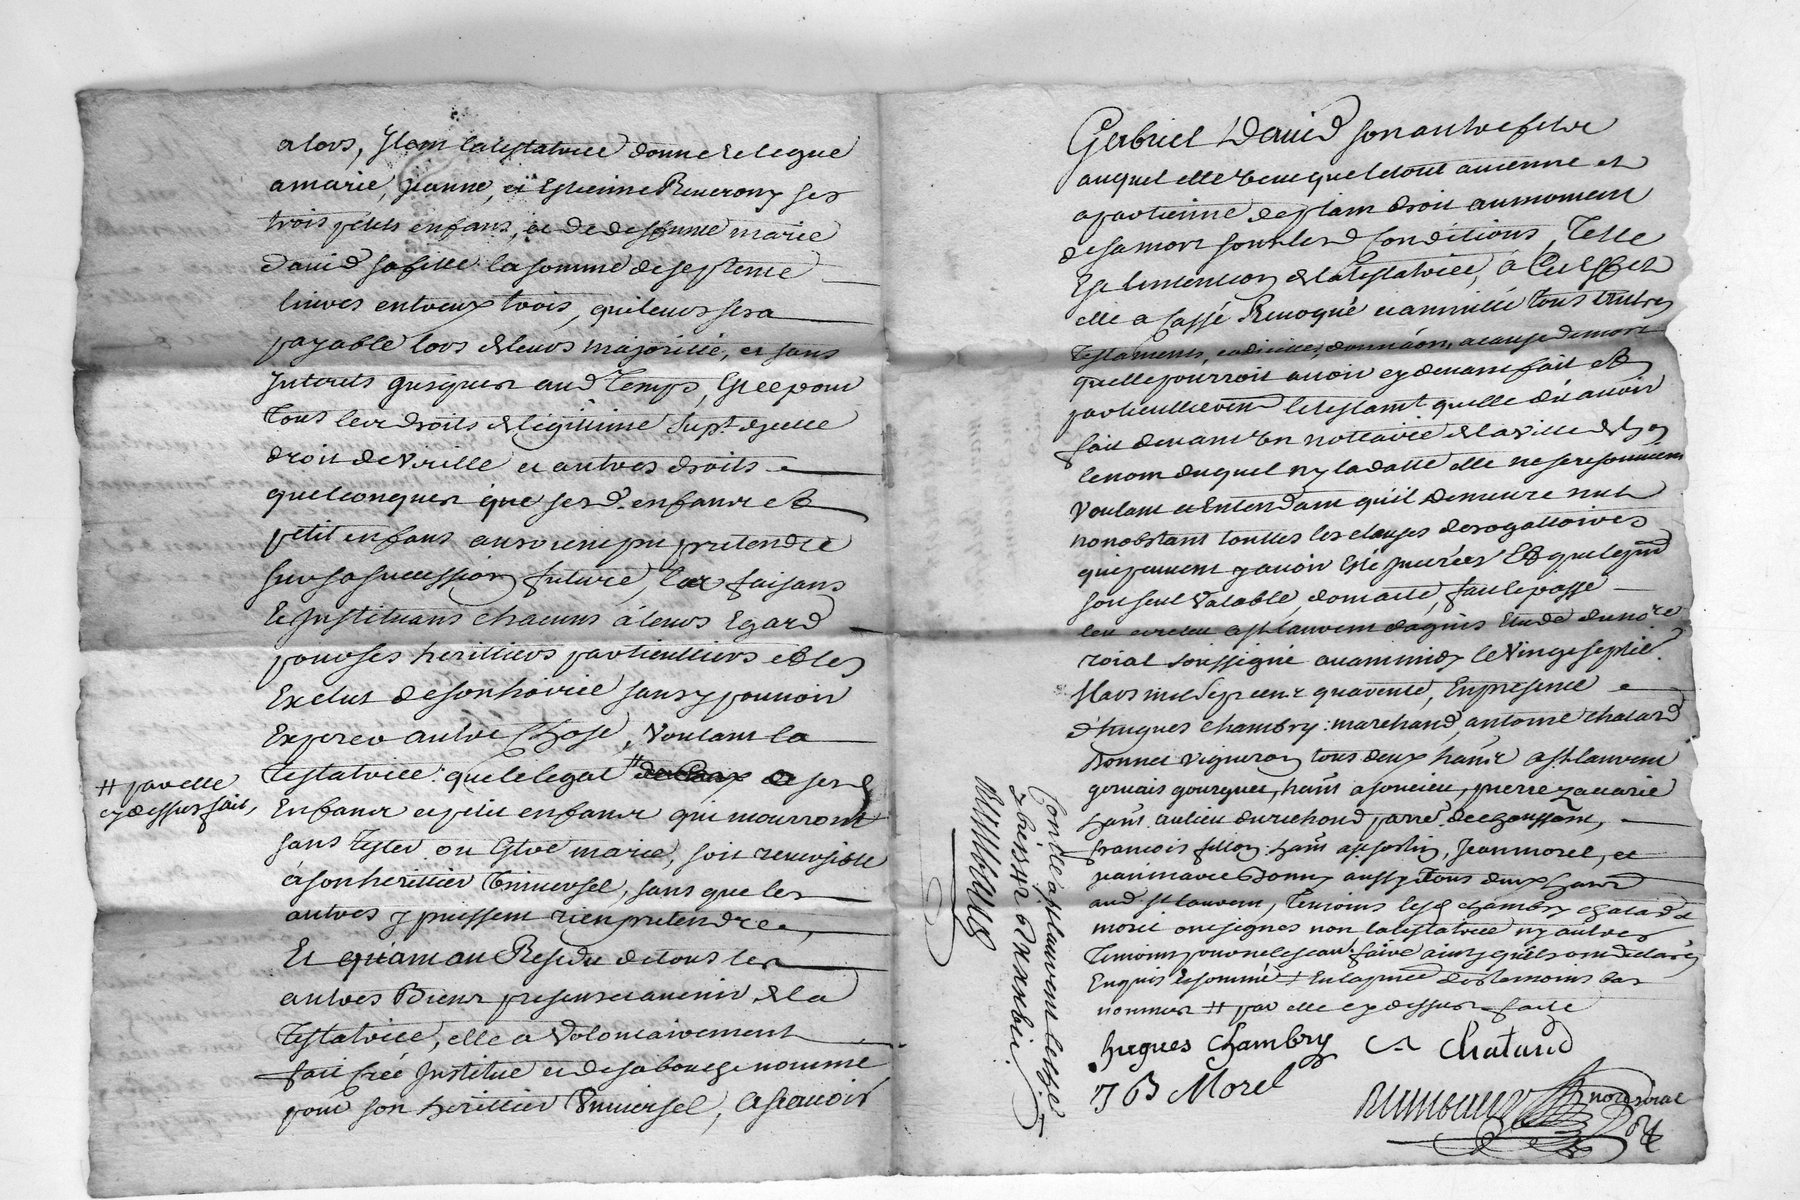 alors, Item latestatrice donne et legue
amarie, jeanne, et Estienne Reverony ses
trois petits enfans, et de deffunte marie
david sa fille la somme de sept cent
livres entreux trois, quileur sera
payable lors de leurs majorité, et sans
Interets jusques aud temps, Et ce pour
Tous leur droits de legitime supt. d'jcelle
droit de vville et autres droits
quelconques que sesd. enfans et
petit enfans auroient pu pretendre
sur sa succession future, Les faisans
Et Instituans chacuns à leurs Egard
pour ses heritiers particulliers et les
Exclut de son hoirie sans y pouvoir
Esperer autre Chose, Voulant la
Testatrice que le legat # a sesd
Enfans et petit enfans qui mourront
sans tester ou Estre mariés, soit reversible
à son herittier Universel, sans que les
autres y puissent rien pretendre,
# par elle
cy dessus fait,
Et quant au Residu de tous les
autres Biens presens et avenir de la
Testatrice, elle a volontairement
fait créé Institué et de sa bouche nommé
pour son herittier Universel, a scavoir
Gabriel David son autre fils
auquel elle veut que le tout avienne et
apartienne de plain droit au moment
de sa mort sous lesd Conditions, Telle
Est l'intention de la testatrice, a Cet Effet
elle a Cassé Revoqué et annullé tous autres
Testaments, codicilles, donnations, a cause de mort
quelle pourroit avoir cy devant fait et
particullierement le testamt. quelle dit avoir
fait devant un nottaire de la ville de Lyon
le nom duquel ny la datte elle ne se resouvient
Voulant et Entendant qu'il demeure nul
nonobstant touttes les clauses derogattoires
qui peuvent y avoir Eté inserées Et que le pnt
soit seul Valable, dont acte, fait et passé
aud. St. laurent dagnis Etude du nore
roial soussigné avant midy le vingt septie.
Mars mil sept cent quarente, En presence
d'hugues chambry marchand, antoine chatard
Bonnet vigneron tous deux hants a St. laurent
gervais gourguet, hant a soucieu, pierre zacarie
hant au lieu du richoud parre. de chaussant,
francois fillon hant a St. sorlin, Jean morel, et
jean marie Bonny aussy tous deux hants
aud. St. laurent, Temoins lesd. chambry chatard et
morel ont signés non la testatrice ny autres
Temoins pour ne le scavoir faire ainsy quils ont declarés
Enquis et sommé + En la pnce des temoins bas
nommés # par elle cy dessus faite
hugues Chambry
Chatard
J B Morel
nore roial
Conllé a St. laurent le